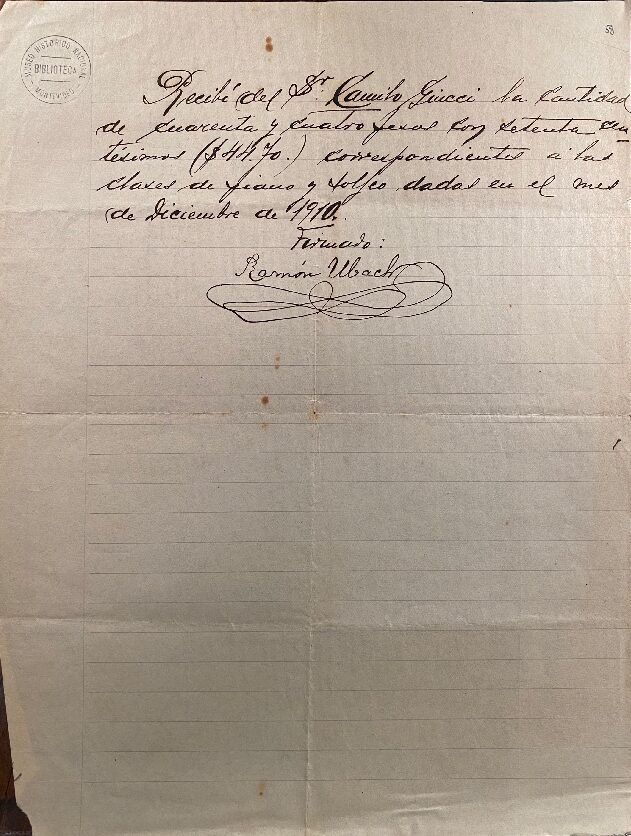 58
MUSEO HISTORICO NACIONAL
BIBLIOTECA
MONTEVIDEO
Recibí del Sr. Camilo Giucci la cantidad
de cuarenta y cuatro pesos con setenta cen
tésimos ($44.70.) correspondientes á las
clases de piano y solfeo dadas en el mes
de Diciembre de 1910.
Firmado:
Ramón Ubach